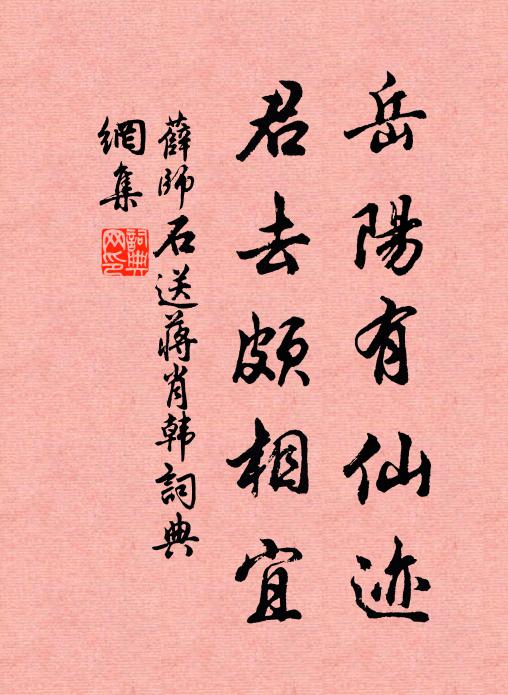 岳陽有仙迹
君去頗相宜
薛師石送蔣肖韩詞典
網集
詞典
网印